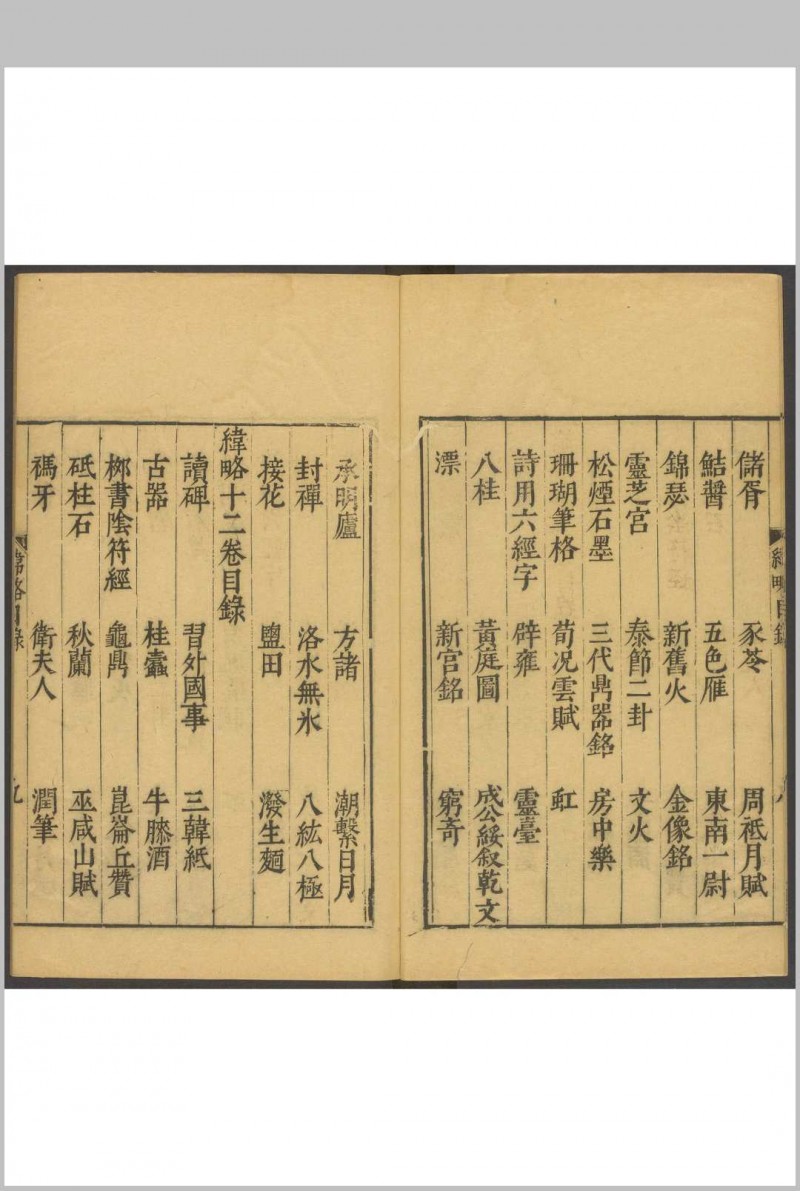 儲胥　豕苓　周祗月賦
鮚醬　五色雁　東南一尉
錦瑟　新舊火　金像銘
靈芝宮　泰節二封　文火
松煙石墨　三代鼎器銘　房中樂
珊瑚筆格　荀况雲賦　虹
詩用六經字　辟雍　靈臺
八桂　黃庭圖　成公綏叙乾文
漂　新宫銘　窮奇
承明廬　方諸　潮繫日月
封禪　洛水無氷　八紘八極
接花　鹽田　潑生麵
緯略十二卷目錄
讀碑　習外國事　三韓紙
古器　桂蠹　牛膝酒
栁書陰符經　龜鼎　崑崙丘贊
砥柱石　秋蘭　巫咸山賦
禡牙　衛夫人　潤筆
緯略目錄　九